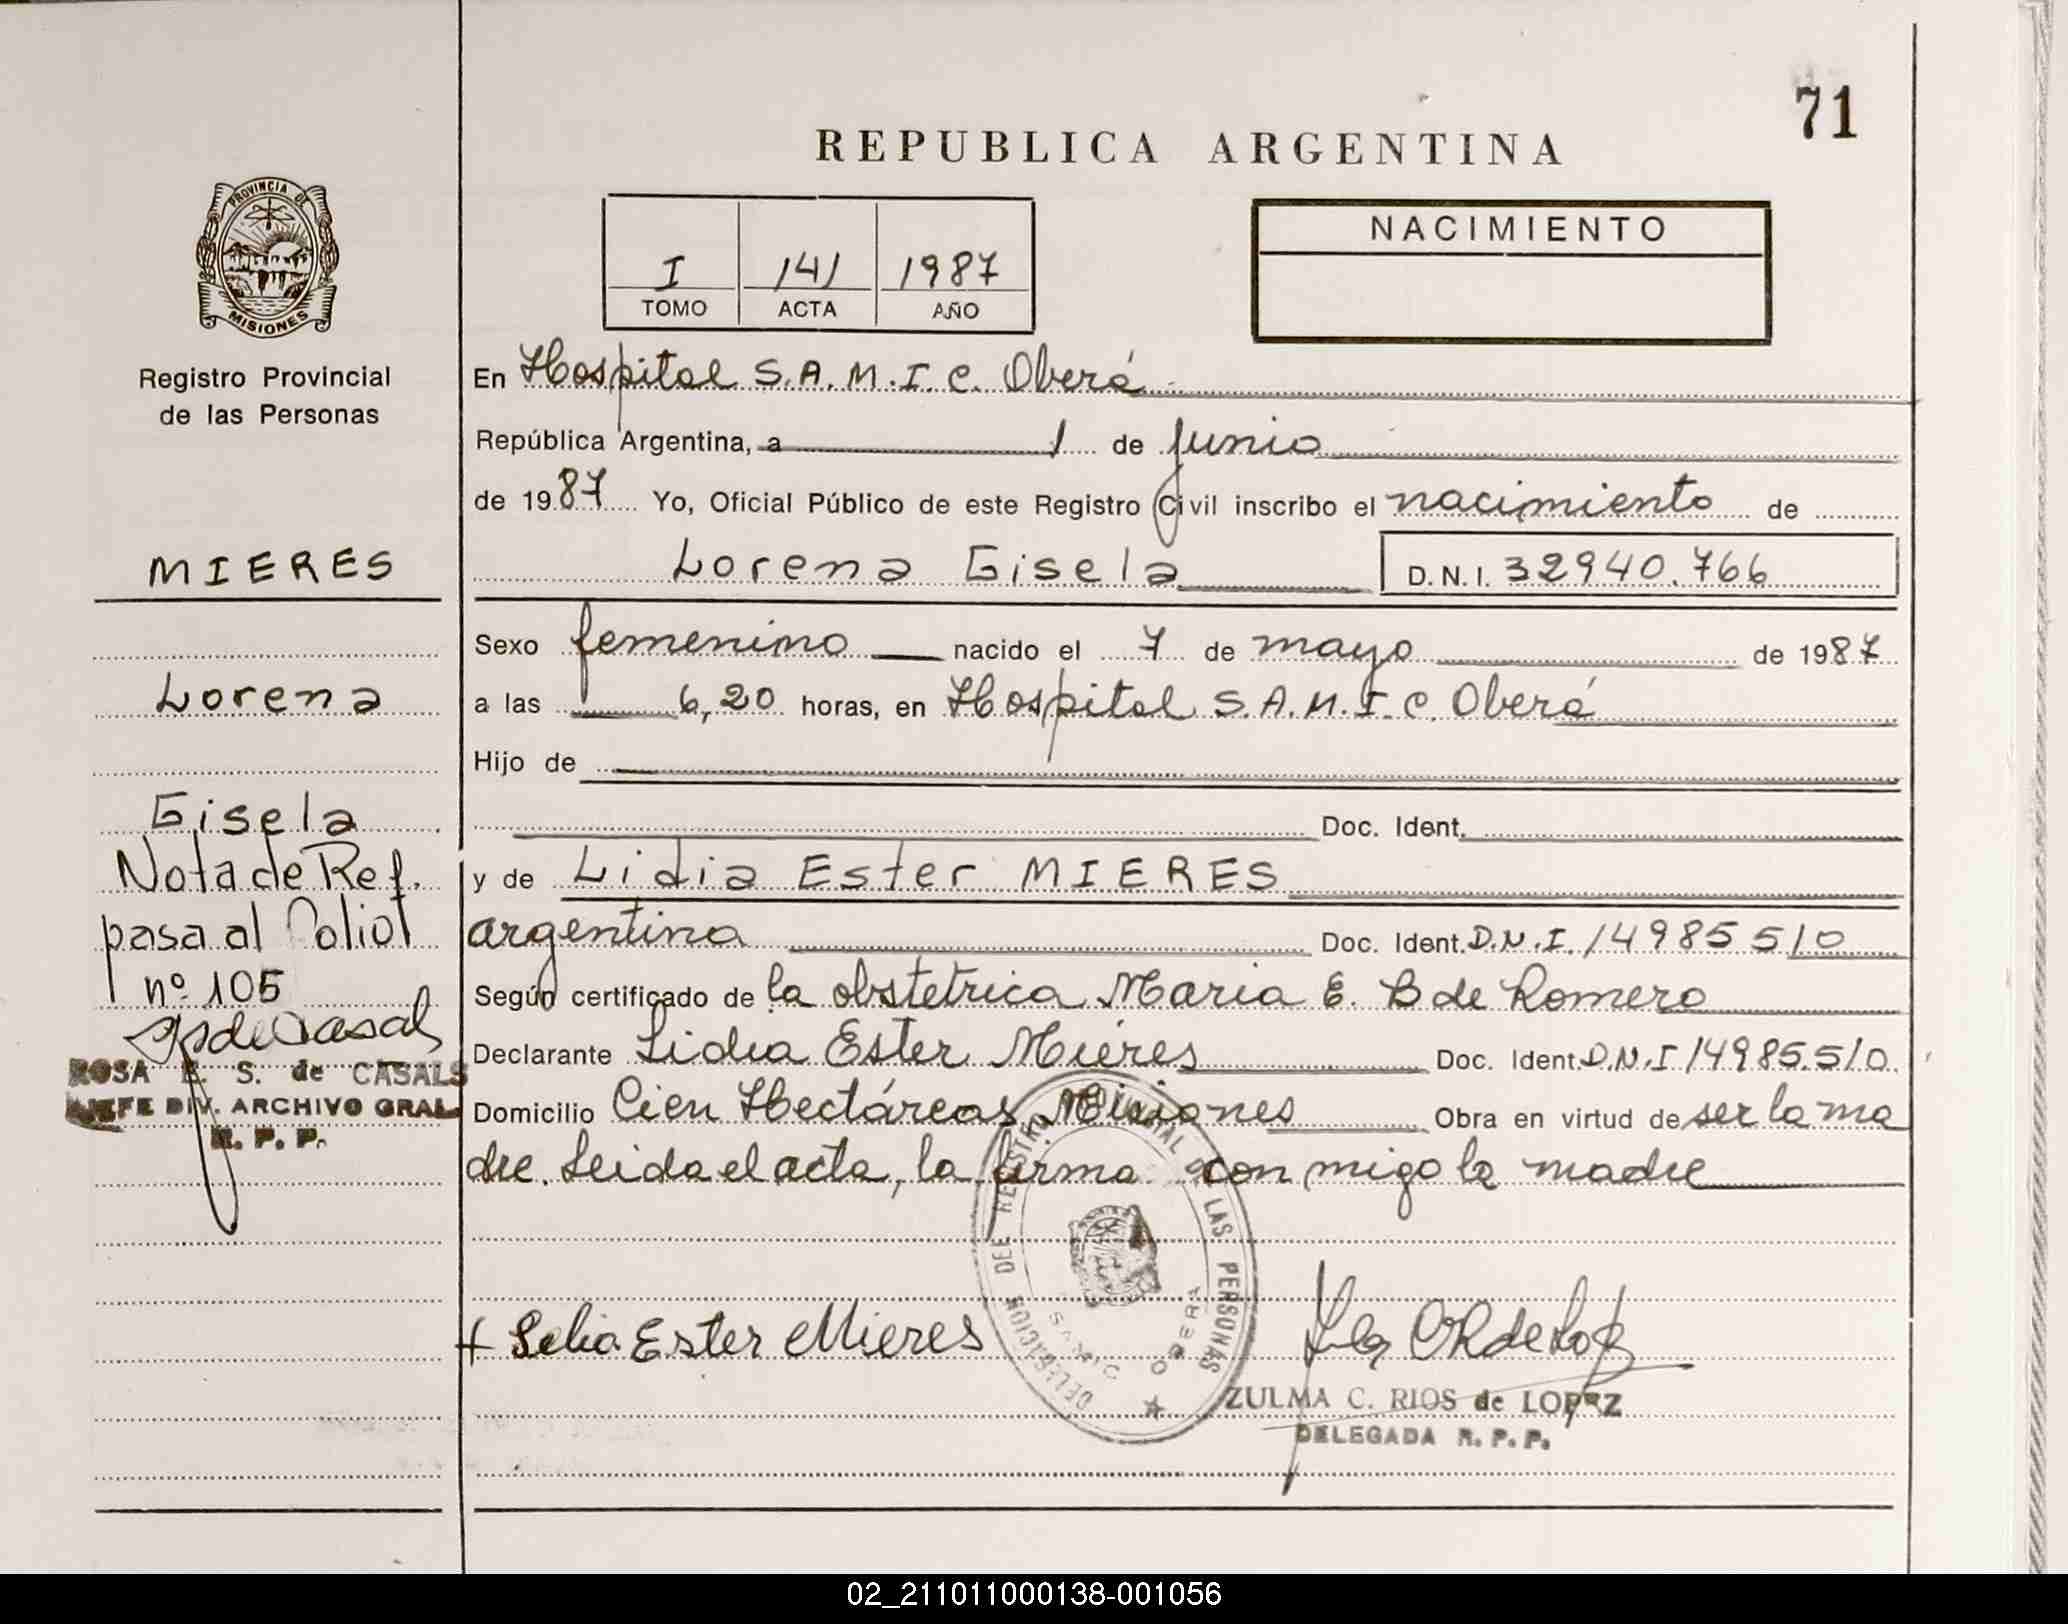 71
REPUBLICA ARGENTINA
PROVINCIA DE
MISIONES
Registro Provincial
de las Personas
I 141 1987
TOMO ACTA AÑO
NACIMIENTO
En Hospital S.A.M.I.C. Oberá
República Argentina, a 1 de junio
de 1987 Yo, Oficial Público de este Registro Civil inscribo el nacimiento de
Lorena Gisela D.N.I. 32940.766
Sexo femenino nacido el 7 de mayo de 1987
a las 6,20 horas, en Hospital S.A.M.I.C. Oberá
Hijo de
Doc. Ident.
y de Lidia Ester MIERES
argentina Doc. Ident. D.N.I. 14985510
Según certificado de la obstetrica Maria E. B de Romero
Declarante Lidia Ester Mieres Doc. Ident. D.N.I 14985.510
Domicilio Cien Hectáreas, Misiones Obra en virtud de ser la ma
dre. Leida el acta, la firma con migo la madre
MIERES
Lorena
Gisela
Nota de Ref.
pasa al
nº 105
ROSA E. S. de CASALS
JEFE DIV. ARCHIVO GRAL.
R. P. P.
DELEGACION DEL REGISTRO PROVINCIAL DE LAS PERSONAS
SAMIC OBERA
Ester Mieres
ZULMA C. RIOS de LOPEZ
DELEGADA R. P. P.
02_211011000138-001056